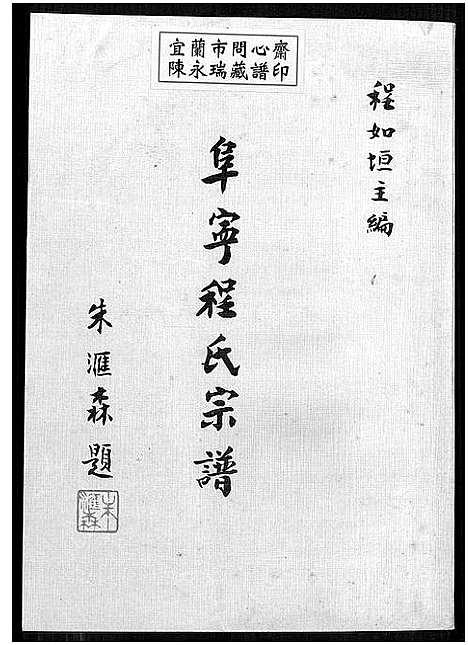 宜蘭市問心齋
陳永瑞藏譜印
程如垣主編
阜寧程氏宗譜
朱滙森題
朱滙森